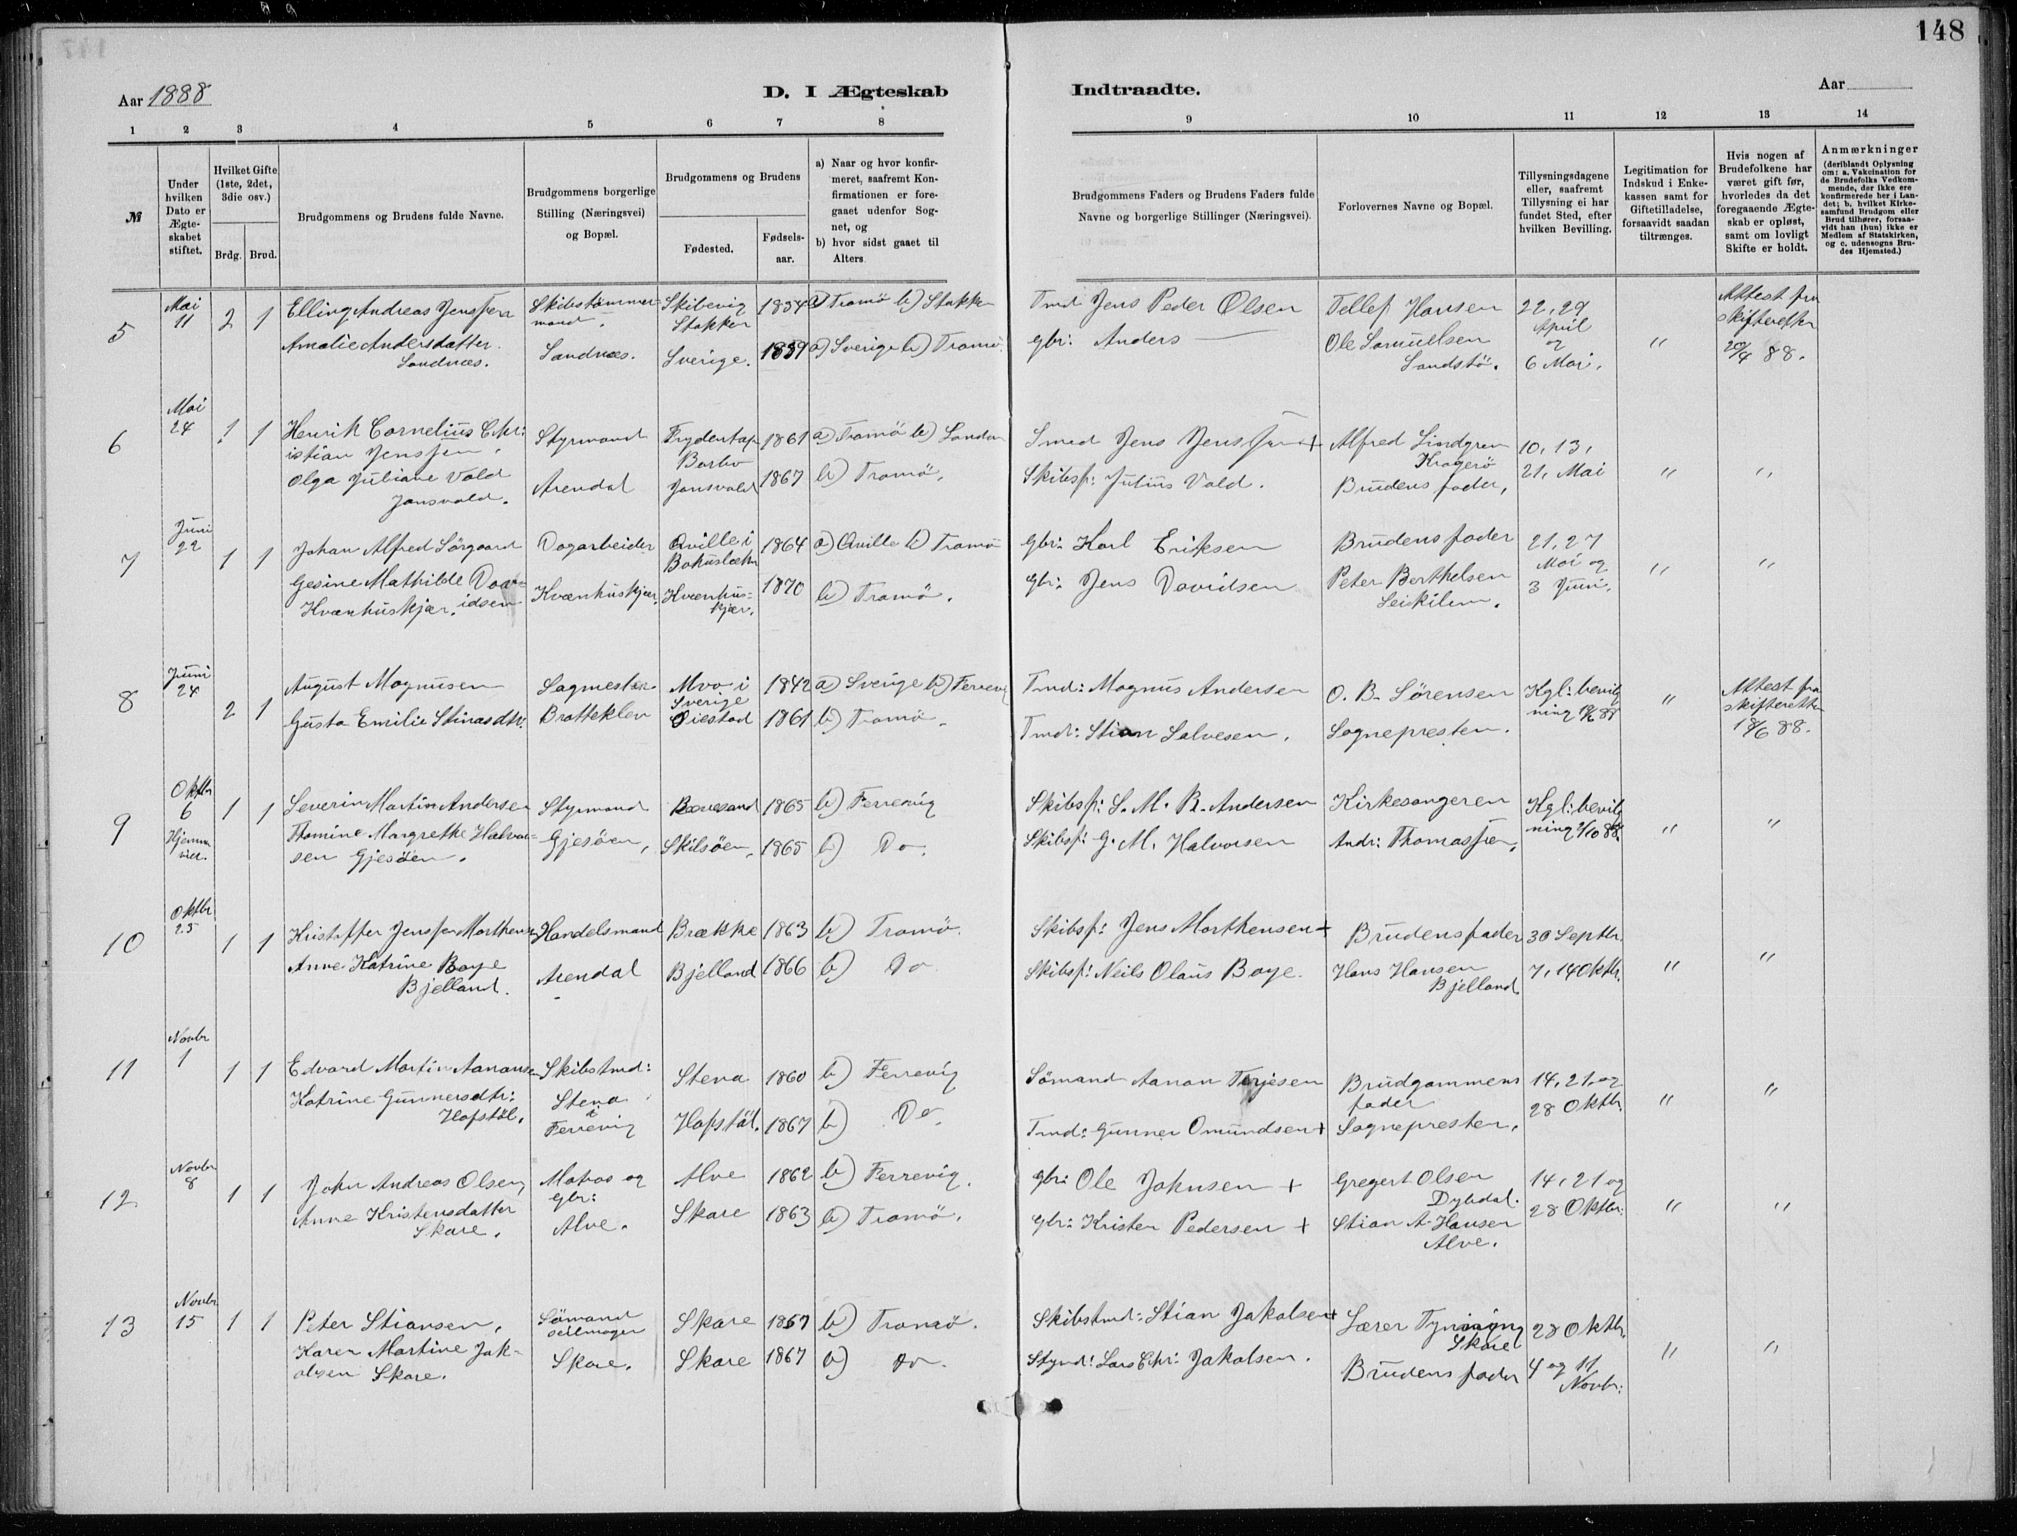 148
Aar 1888
D. I Ægteskab
Indtraadte.
Aar
1 2 3 4 5 6 7 8 9 10 11 12 13 14
№
Under hvilken Dato er Ægteskabet stiftet.
Hvilket Gifte (1ste, 2det, 3die osv.)
Brdg. Brud.
Brudgommens og Brudens fulde Navne.
Brudgommens borgerlige Stilling (Næringsvei) og Bopæl.
Brudgommens og Brudens
Fødested.
Fødselsaar.
a) Naar og hvor konfirmeret, saafremt Konfirmationen er foregaaet udenfor Sognet, og
b) hvor sidst gaaet til Alters.
Brudgommens Faders og Brudens Faders fulde Navne og borgerlige Stillinger (Næringsvei).
Forlovernes Navne og Bopæl.
Tillysningsdagene eller, saafremt Tillysning ei har fundet Sted, efter hvilken Bevilling.
Legitimation for Indskud i Enkekassen samt for Giftetilladelse, forsaavidt saadan tiltrænges.
Hvis nogen af Brudefolkene har været gift før, hvorledes da det foregaaende Ægteskab er opløst, samt om lovligt Skifte er holdt.
Anmærkninger
(deriblandt Oplysning om: a. Vakcination for de Brudefolks Vedkommende, der ikke ere konfirmerede her i Landet; b. hvilket Kirkesamfund Brudgom eller Brud tilhører, forsaavidt han (hun) ikke er Medlem af Statskirken, og c. udensogns Brudes Hjemsted.)
5 Mai 11 2 1 Elling Andreas Jenssen Skibstømmermand. Skibevig Stokken 1834 a) Tromø b) Stokken Tmd Jens Peder Olsen Tellef Hansen 22, 29 April og Attest fra skifteretten 20/4 88.
Amalie Andersdatter Sandnæs. Sandnæs. Sverige. 1859 a) Sverige b) Tromø. gbr: Anders — Ole Samuelsen Sandstø. 6 Mai. "
6 Mai 24 1 1 Henrik Cornelius Christian Jenssen. Styrmand Barbo 1861 a) Tromø b) Smed Jens Jenssen + Alfred Lindgren Kragerø 10, 13,
Olga Juliane Vold Jonsvold. Arendal Jonsvold 1867 b) Tromø. Skibsf: Julius Vold. Brudens fader, 21, Mai " "
7 Juni 22 1 1 Johan Alfred Sörgaard Dagarbeider Qville i 1864 a) Qville b) Tromø gbr: Karl Eriksen Brudens fader 21, 27 Mai og
Gesine Mathilde Davidsen Kvænhuskjær. Kvænhuskjær. Kvænhuskjær. 1870 b) Tromø. gbr: Jens Davidsen Peter Berthelsen 3 Juni. " "
8 Juni 24 2 1 August Magnusen Sagmester Mvo i Sverige 1842 a) Sverige b) Færrevig Tmd: Magnus Andersen O. B. Sørensen Kgl: bevilgning Attest fra skifteretten 18/6 88.
Gusta Emilie Stinasdtr. Bratteklev Øiestad 1861 b) Tromø. Tmd: Stian Salvesen. Sognepresten. "
9 Oktbr 6 Hjemmeviet. 1 1 Severin Martin Andersen Styrmand 1865 b) Færrevig Skibsf: S. M. B. Andersen Kirkesangeren Kgl: bevilgning
Thomine Margrethe Halvorsen Gjesøen. Gjesøen, Skilsøen, 1865 b) Do. Skibsf: G. M. Halvorsen Andr: Thomassen. " "
10 Oktbr 25 1 1 Kristoffer Jenssen Morthensen Handelsmand Brække 1863 b) Tromø. Skibsf: Jens Morthensen + Brudens fader 30 Septbr.
Anne Katrine Boye Bjelland. Arendal Bjelland 1866 b) Do Skibsf: Neils Olaus Boye. Hans Hansen Bjelland 7, 14 Oktbr. " "
11 Novbr 1 1 1 Edvard Martin Aanonsen Skibstmd: Stena 1860 b) Færrevig Sømand Aanon Terjesen Brudgommens fader 14, 21, og
Katrine Gunnersdtr: Hofstöl. Stena i Færrevig Hofstöl. 1867 b) Do. Tmd: Gunner Omundsen + Sognepresten. 28 Oktbr. " "
12 Novbr 8 1 1 John Andreas Olsen, Matros og gbr: Alve 1862 b) Færrevig. gbr: Ole Johnsen + Gregert Olsen Dybdal. 14, 21 og
Anne Kristensdatter Skare. Alve. Skare 1863 b) Tromø. gbr: Kristen Pedersen + Stian A. Hansen Alve. 28 Oktbr: " "
13 Novbr 15 1 1 Peter Stiansen, Sømand seilmager Skare 1857 b) Tromø. Skibstmd: Stian Jakobsen + Lærer Skare 28 Oktbr.
Karen Martine Jakobsen Skare. Skare. Skare 1867 b) do. Stymd: Lars Chr: Jakobsen. Brudens fader 4 og 11 Novbr: " "